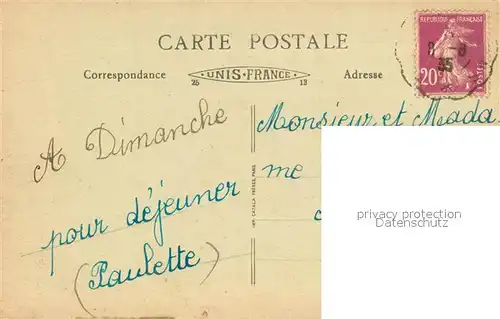 CARTE POSTALE
Correspondance
UNIS-FRANCE
25
13
Adresse
REPUBLIQUE FRANÇAISE
20c
POSTES
8 -8
35
A Dimanche
pour déjeuner
(Paulette)
IMP. CATALA FRÈRES, PARIS
Monsieur et Mada
me
privacy protection
Datenschutz